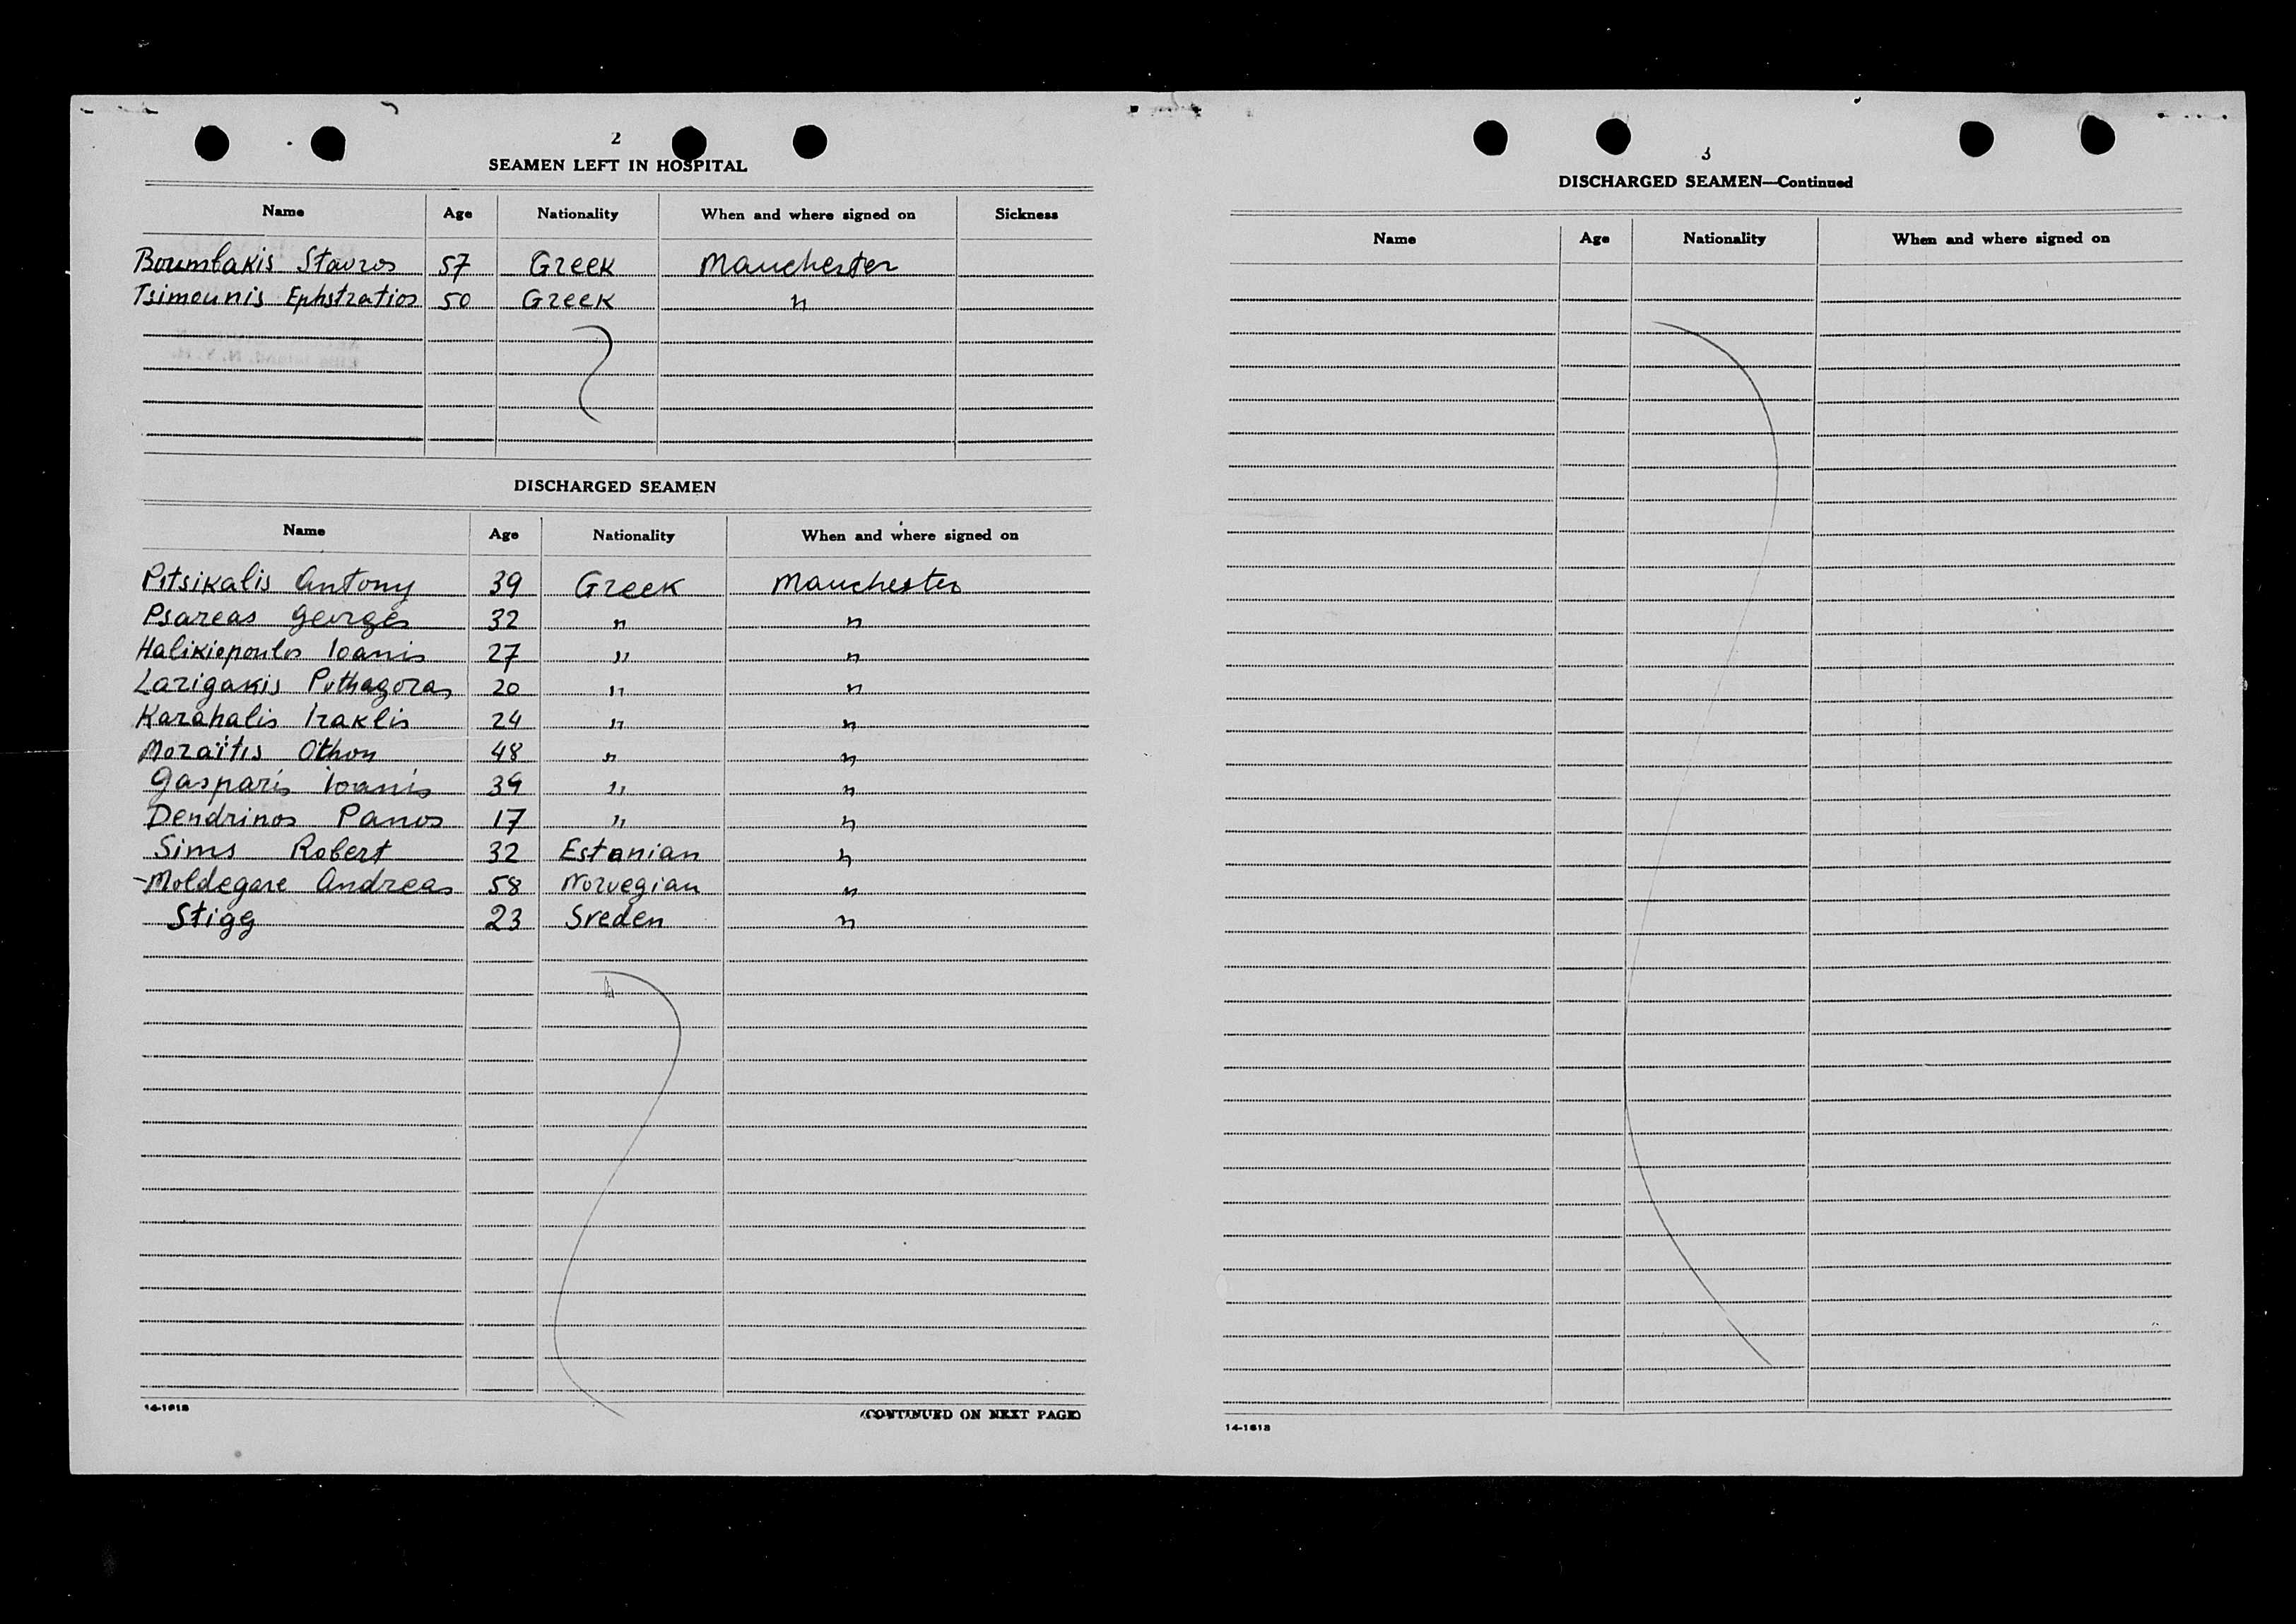 2
SEAMEN LEFT IN HOSPITAL
Name Age Nationality When and where signed on Sickness
Boumbakis Stavros 57 Greek Manchester
Tsimounis Ephstratios 50 Greek "
DISCHARGED SEAMEN
Name Age Nationality When and where signed on
Pitsikalis Antony 39 Greek Manchester
Psareas Georges 32 " "
Halikiopoulos Ioanis 27 " "
Larigakis Puthagoras 20 " "
Karahalis Iraklis 24 " "
Moraïtis Othon 48 " "
Gasparis Ioanis 39 " "
Dendrinos Panos 17 " "
Sims Robert 32 Estonian "
-Moldegare Andreas 58 Norvegian "
Stigg 23 Sreden "
14-1618
(CONTINUED ON NEXT PAGE)
3
DISCHARGED SEAMEN—Continued
Name Age Nationality When and where signed on
14-1618